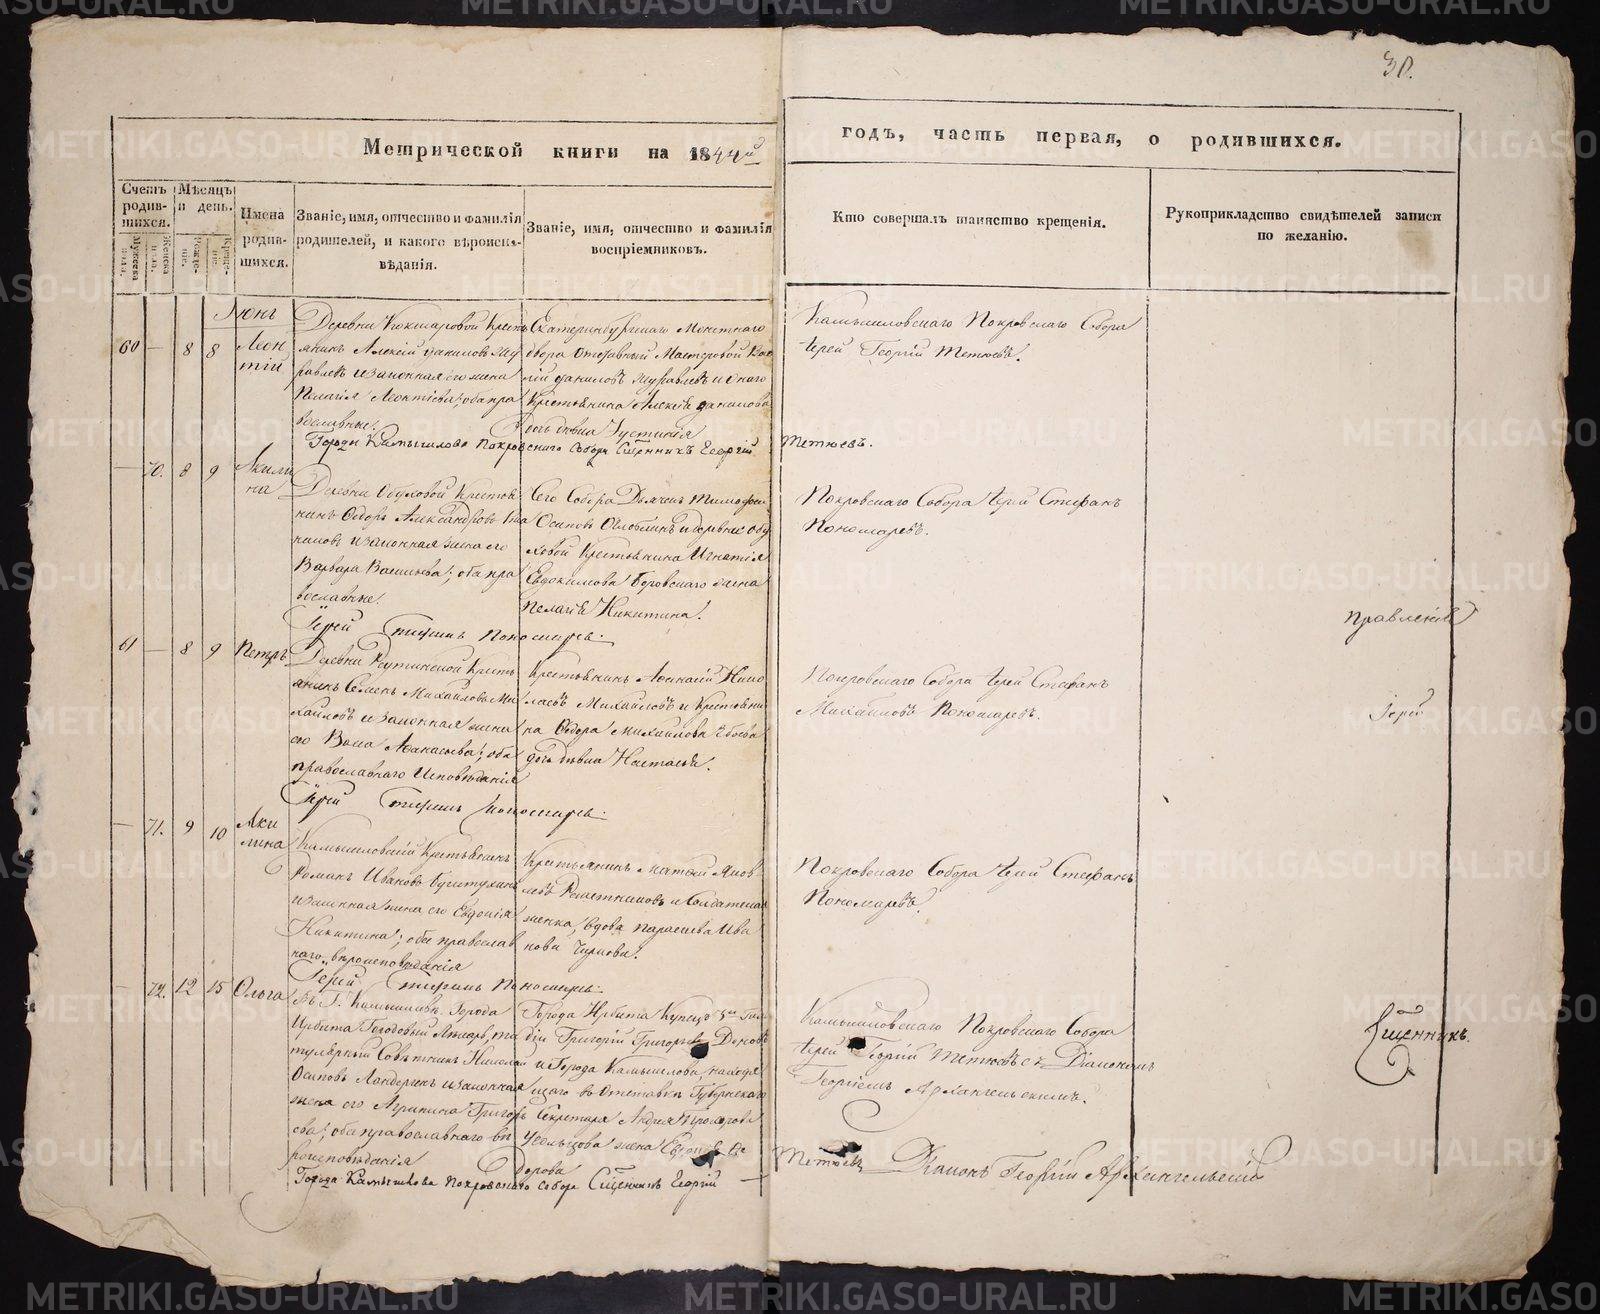 30.
Метрической книги на 1844й
годъ, часть первая, о родившихся.
Счетъ родив-
шихся.
Мѣсяцъ
и день.
Имена
родив-
шихся.
Званіе, имя, отчество и фамилія
родителей, и какого вѣроиспо-
вѣданія.
Званіе, имя, отчество и фамилія
воспріемниковъ.
Кто совершалъ таинство крещенія.
Рукоприкладство свидѣтелей записи
по желанію.
Мужеска
пола.
Женска
пола.
Рожде-
ніе.
Креще-
ніе.
Іюнь
60 — 8 8
Леон
тій
Деревни Кокшаровой Кресть
янинъ Алексій Даниловъ Жу
равлевъ и законная его жена
Пелагія Леонтіева; оба пра
вославные.
Екатеринбургскаго Монетнаго
двора Отставный Мастеровой
Даниловъ Журавлевъ и онаго
Крестьянина Алексія Данилова
дочь дѣвка Устинія
Камышловскаго Покровскаго Собора
Іерей Георгій Тетюевъ.
Города Камышлова Покровскаго Собора Сщенникъ Георгій Тетюевъ.
— 70. 8 9
Акили
на
Деревни Обуховой Крестья
нинъ Ѳедоръ Александровъ
и законная жена его
Варвара Васильева; оба пра
вославные.
Сего Собора Дьячекъ Тимофей
Осиповъ и деревни Обу
ховой Крестьянина Игнатія
Евдокимова Боровскаго жена
Пелагія Никитина.
Покровскаго Собора Іерей Стефанъ
Пономаревъ.
Іерей Стефанъ Пономаревъ.
61 — 8 9
Петръ
Деревни Реутинской Кресть
янинъ Семенъ Михайловъ Ми
хайловъ и законная жена
его Васса Афанасьева; оба
православнаго Исповѣданія
Крестьянинъ Афанасій Нико
лаевъ Михайловъ и Крестьяни
на Ѳедора Михайлова
дочь дѣвка Настасья.
Покровскаго Собора Іерей Стефанъ
Михайловъ Пономаревъ.
Правленія
Іерей
Іерей Стефанъ Пономаревъ.
— 71. 9 10
Аки
лина
Камышловскій Крестьянинъ
Романъ Ивановъ
и законная жена его Евдокія
Никитина; оба православ
наго вѣроисповѣданія
Крестьянинъ Матвій Яков
левъ Решетниковъ и Солдатская
женка, вдова Парасковія Ива
нова
Покровскаго Собора Іерей Стефанъ
Пономаревъ.
Іерей Стефанъ Пономаревъ.
— 72. 12 15
Ольга
Въ Г. Камышловѣ, Города
Ирбита Городовый Лѣкарь, ти
тулярный Совѣтникъ Николай
Осиповъ и законная
жена его Агрипина Григорь
ева; оба православнаго вѣ
роисповѣданія
Города Ирбита Купецъ 3й Гиль
діи Григорій Григорьевъ
и Города Камышлова, находя
щагося въ Отставкѣ Губернскаго
Секретаря Андрея
жена
Камышловскаго Покровскаго Собора
Іерей Георгій Тетюевъ съ Діакономъ
Георгіемъ Архангельскимъ.
Сщенникъ.
Города Камышлова Покровскаго Собора Сщенникъ Георгій Тетюевъ Діаконъ Георгій Архангельскій